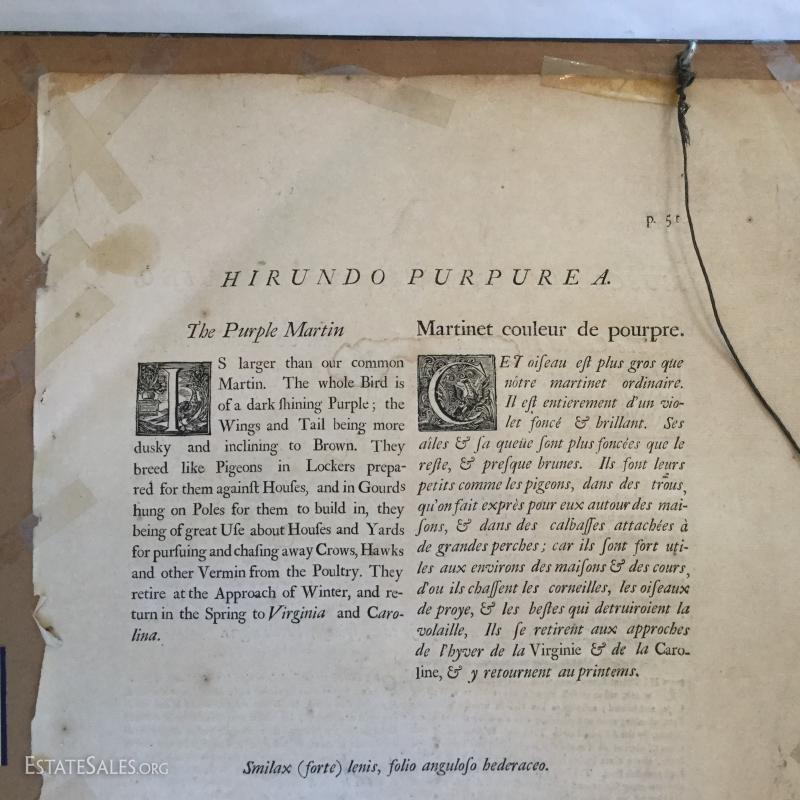 p. 51
HIRUNDO PURPUREA.
The Purple Martin
IS larger than our common
Martin. The whole Bird is
of a dark ſhining Purple; the
Wings and Tail being more
dusky and inclining to Brown. They
breed like Pigeons in Lockers prepa-
red for them againſt Houſes, and in Gourds
hung on Poles for them to build in, they
being of great Uſe about Houſes and Yards
for purſuing and chaſing away Crows, Hawks
and other Vermin from the Poultry. They
retire at the Approach of Winter, and re-
turn in the Spring to Virginia and Caro-
lina.
Martinet couleur de pourpre.
CET oiſeau eſt plus gros que
nôtre martinet ordinaire.
Il eſt entierement d'un vio-
let foncé & brillant. Ses
aîles & ſa queüe ſont plus foncées que le
reſte, & preſque brunes. Ils font leurs
petits comme les pigeons, dans des trous,
qu'on fait exprès pour eux autour des mai-
ſons, & dans des calbaſſes attachées à
de grandes perches; car ils ſont fort uti-
les aux environs des maiſons & des cours,
d'ou ils chaſſent les corneilles, les oiſeaux
de proye, & les beſtes qui detruiroient la
volaille, Ils ſe retirent aux approches
de l'hyver de la Virginie & de la Caro-
line, & y retournent au printems.
Smilax (forte) lenis, folio anguloſo hederaceo.
ESTATESALES.ORG